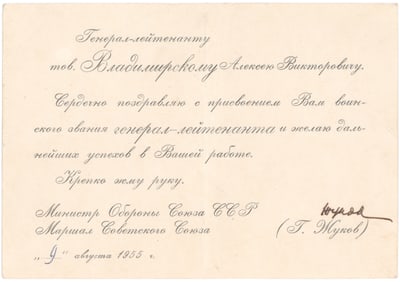 Генерал-лейтенанту
тов. Владимирскому Алексею Викторовичу.
Сердечно поздравляю с присвоением Вам воин-
ского звания генерал-лейтенанта и желаю даль-
нейших успехов в Вашей работе.
Крепко жму руку.
Министр Обороны Союза ССР
Маршал Советского Союза (Г. Жуков)
„9" августа 1955 г.